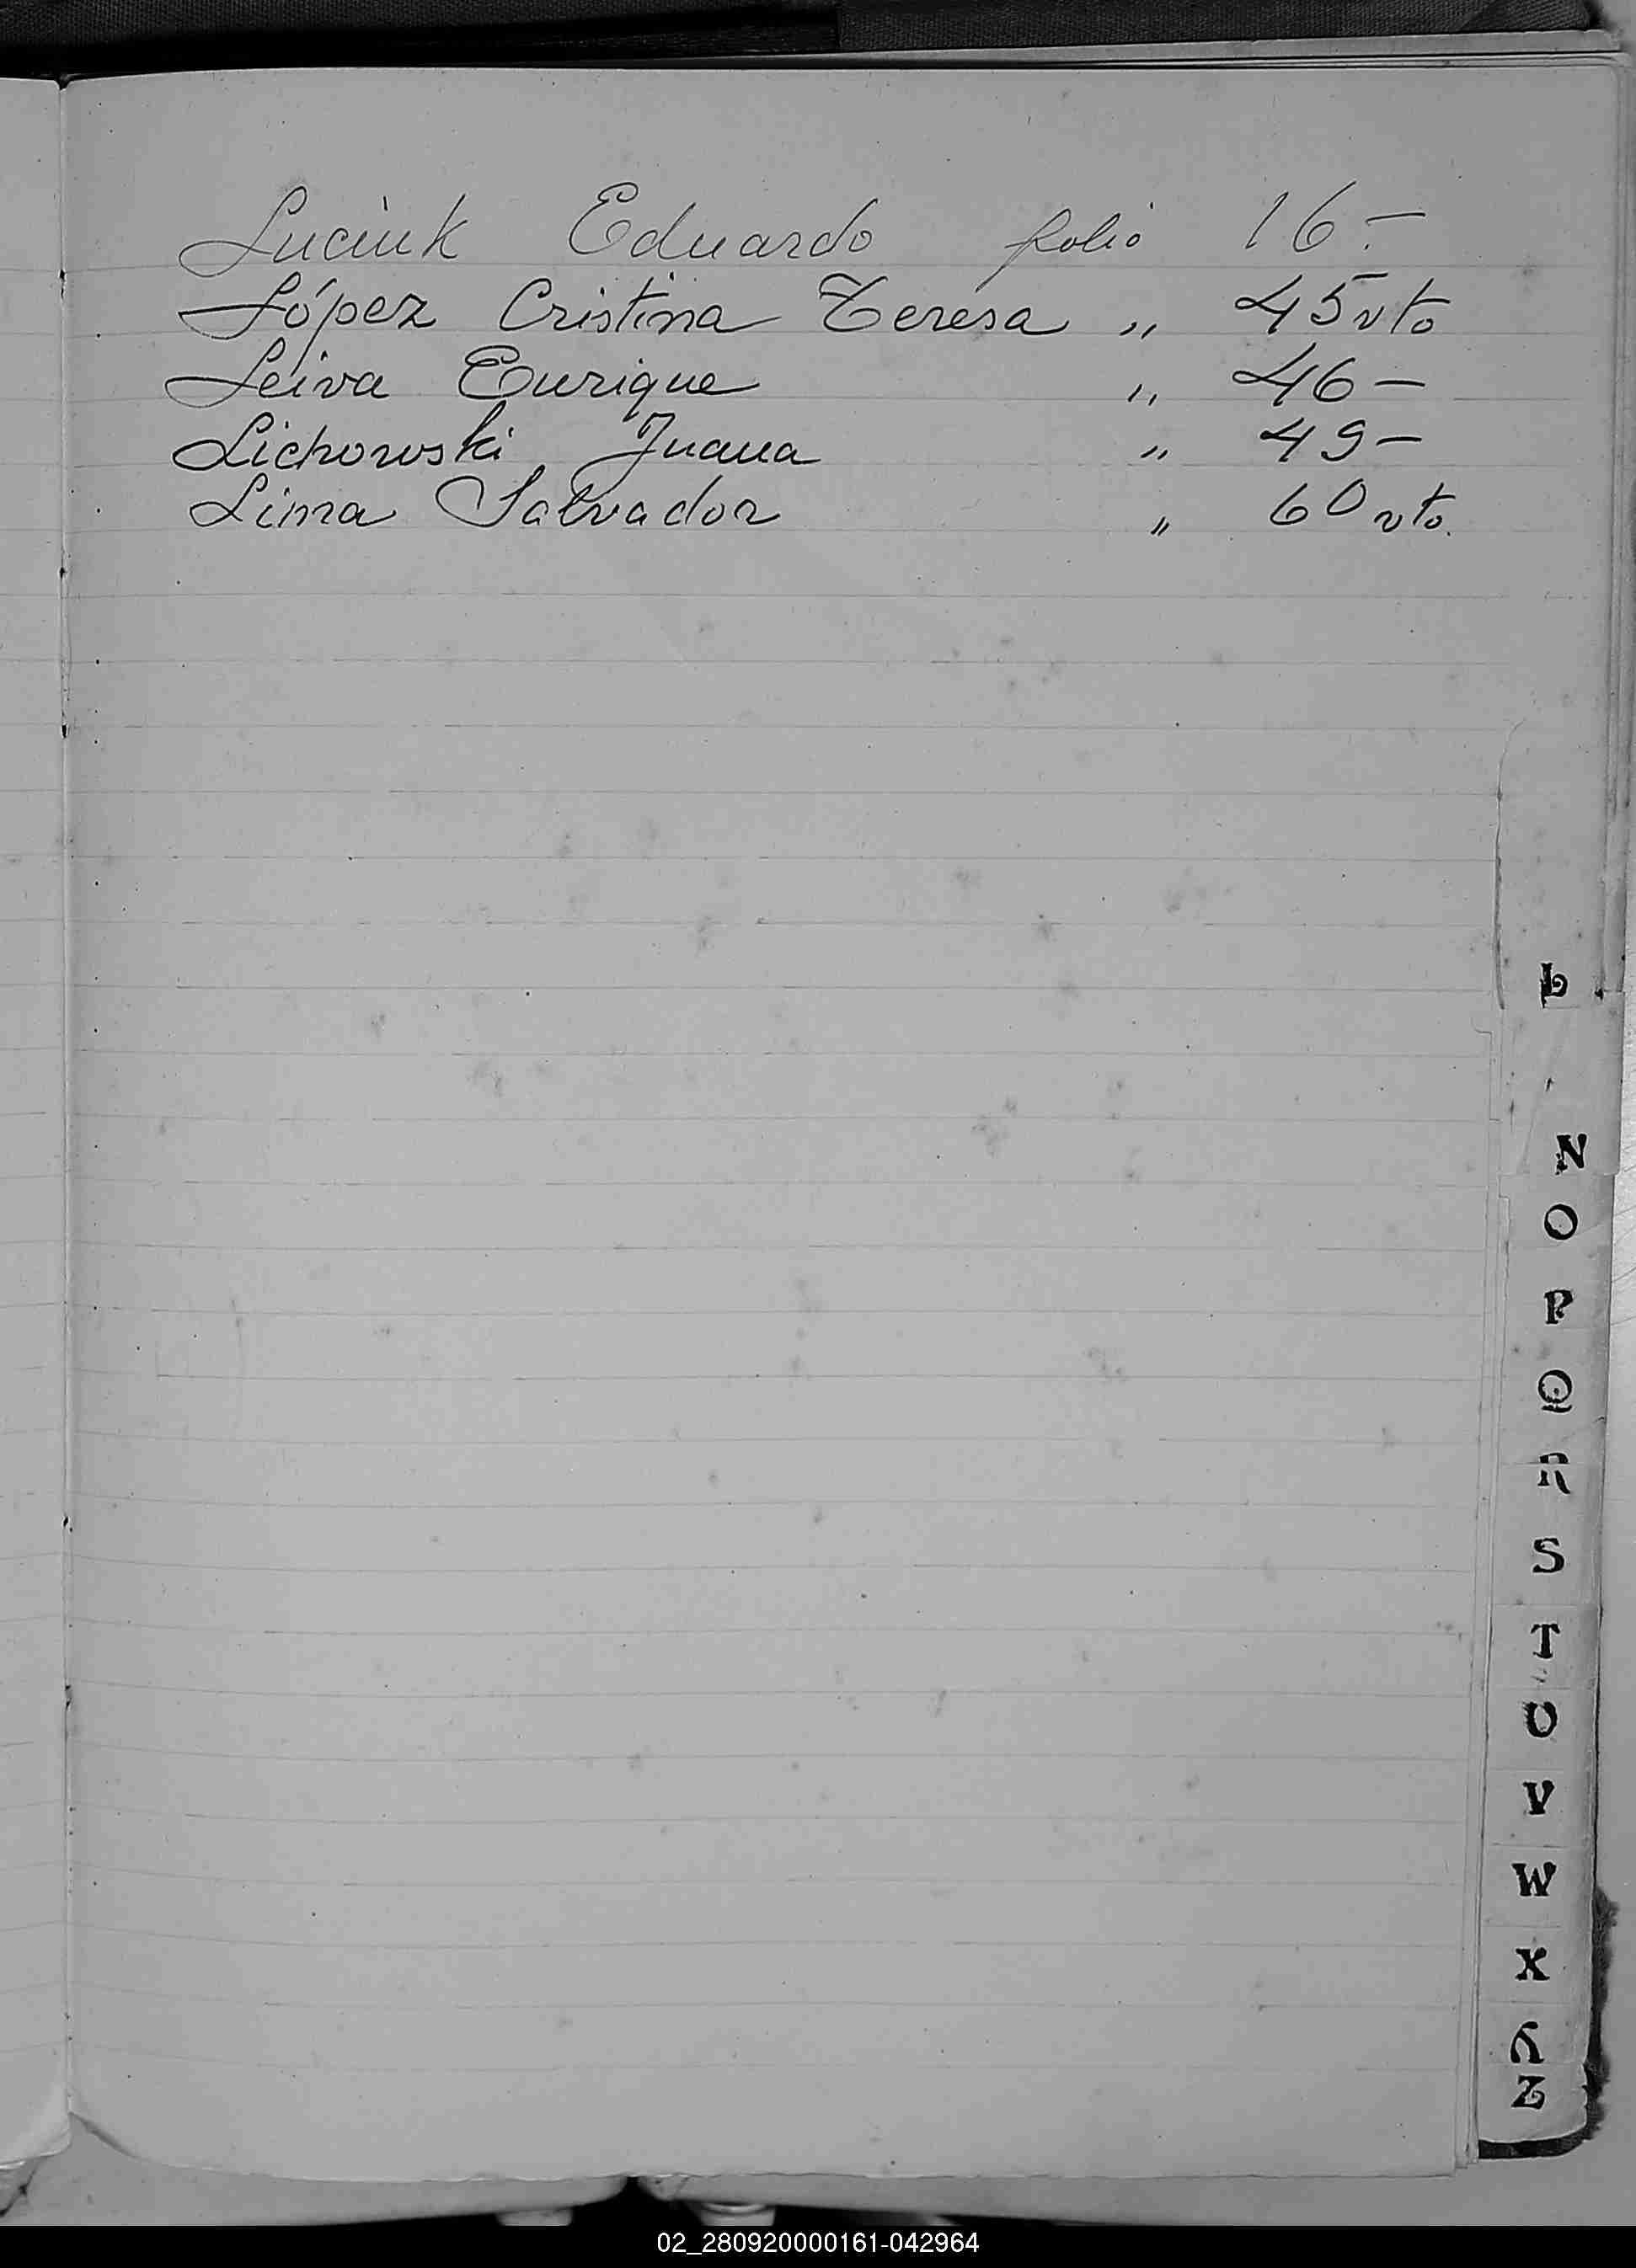 Luciuk Eduardo folio 16.-
López Cristina Teresa " 45 vto
Leiva Enrique " 46 -
Lichowski Juana " 49 -
Lima Salvador " 60 vto.
L
N
O
P
Q
R
S
T
U
V
W
X
Y
Z
02_280920000161-042964